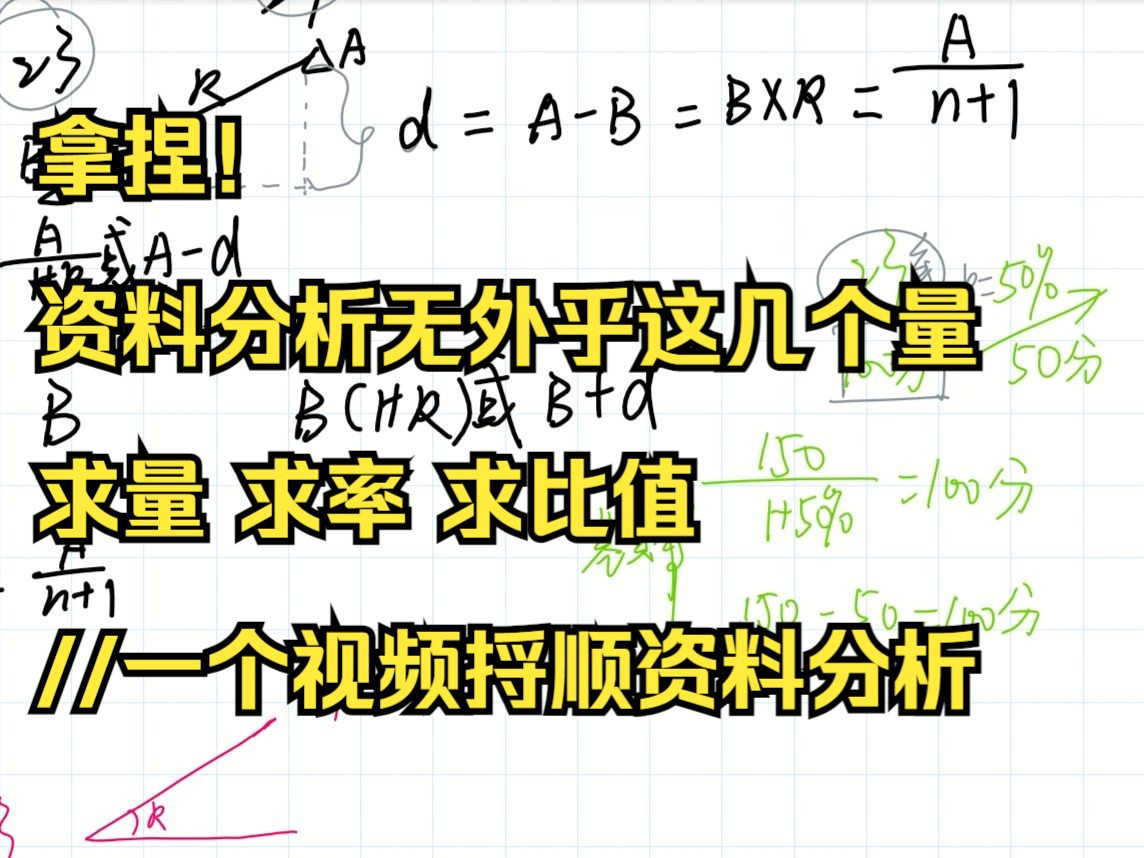 23
R A
d = A-B = B×R = A/(n+1)
拿捏！
A 或 A-d
1+R
23 R=50%
资料分析无外乎这几个量
100分 50分
B B(1+R)或 B+d
150/(1+50%) = 100分
求量 求率 求比值
A/(n+1)
150 - 50 = 100分
//一个视频捋顺资料分析
R